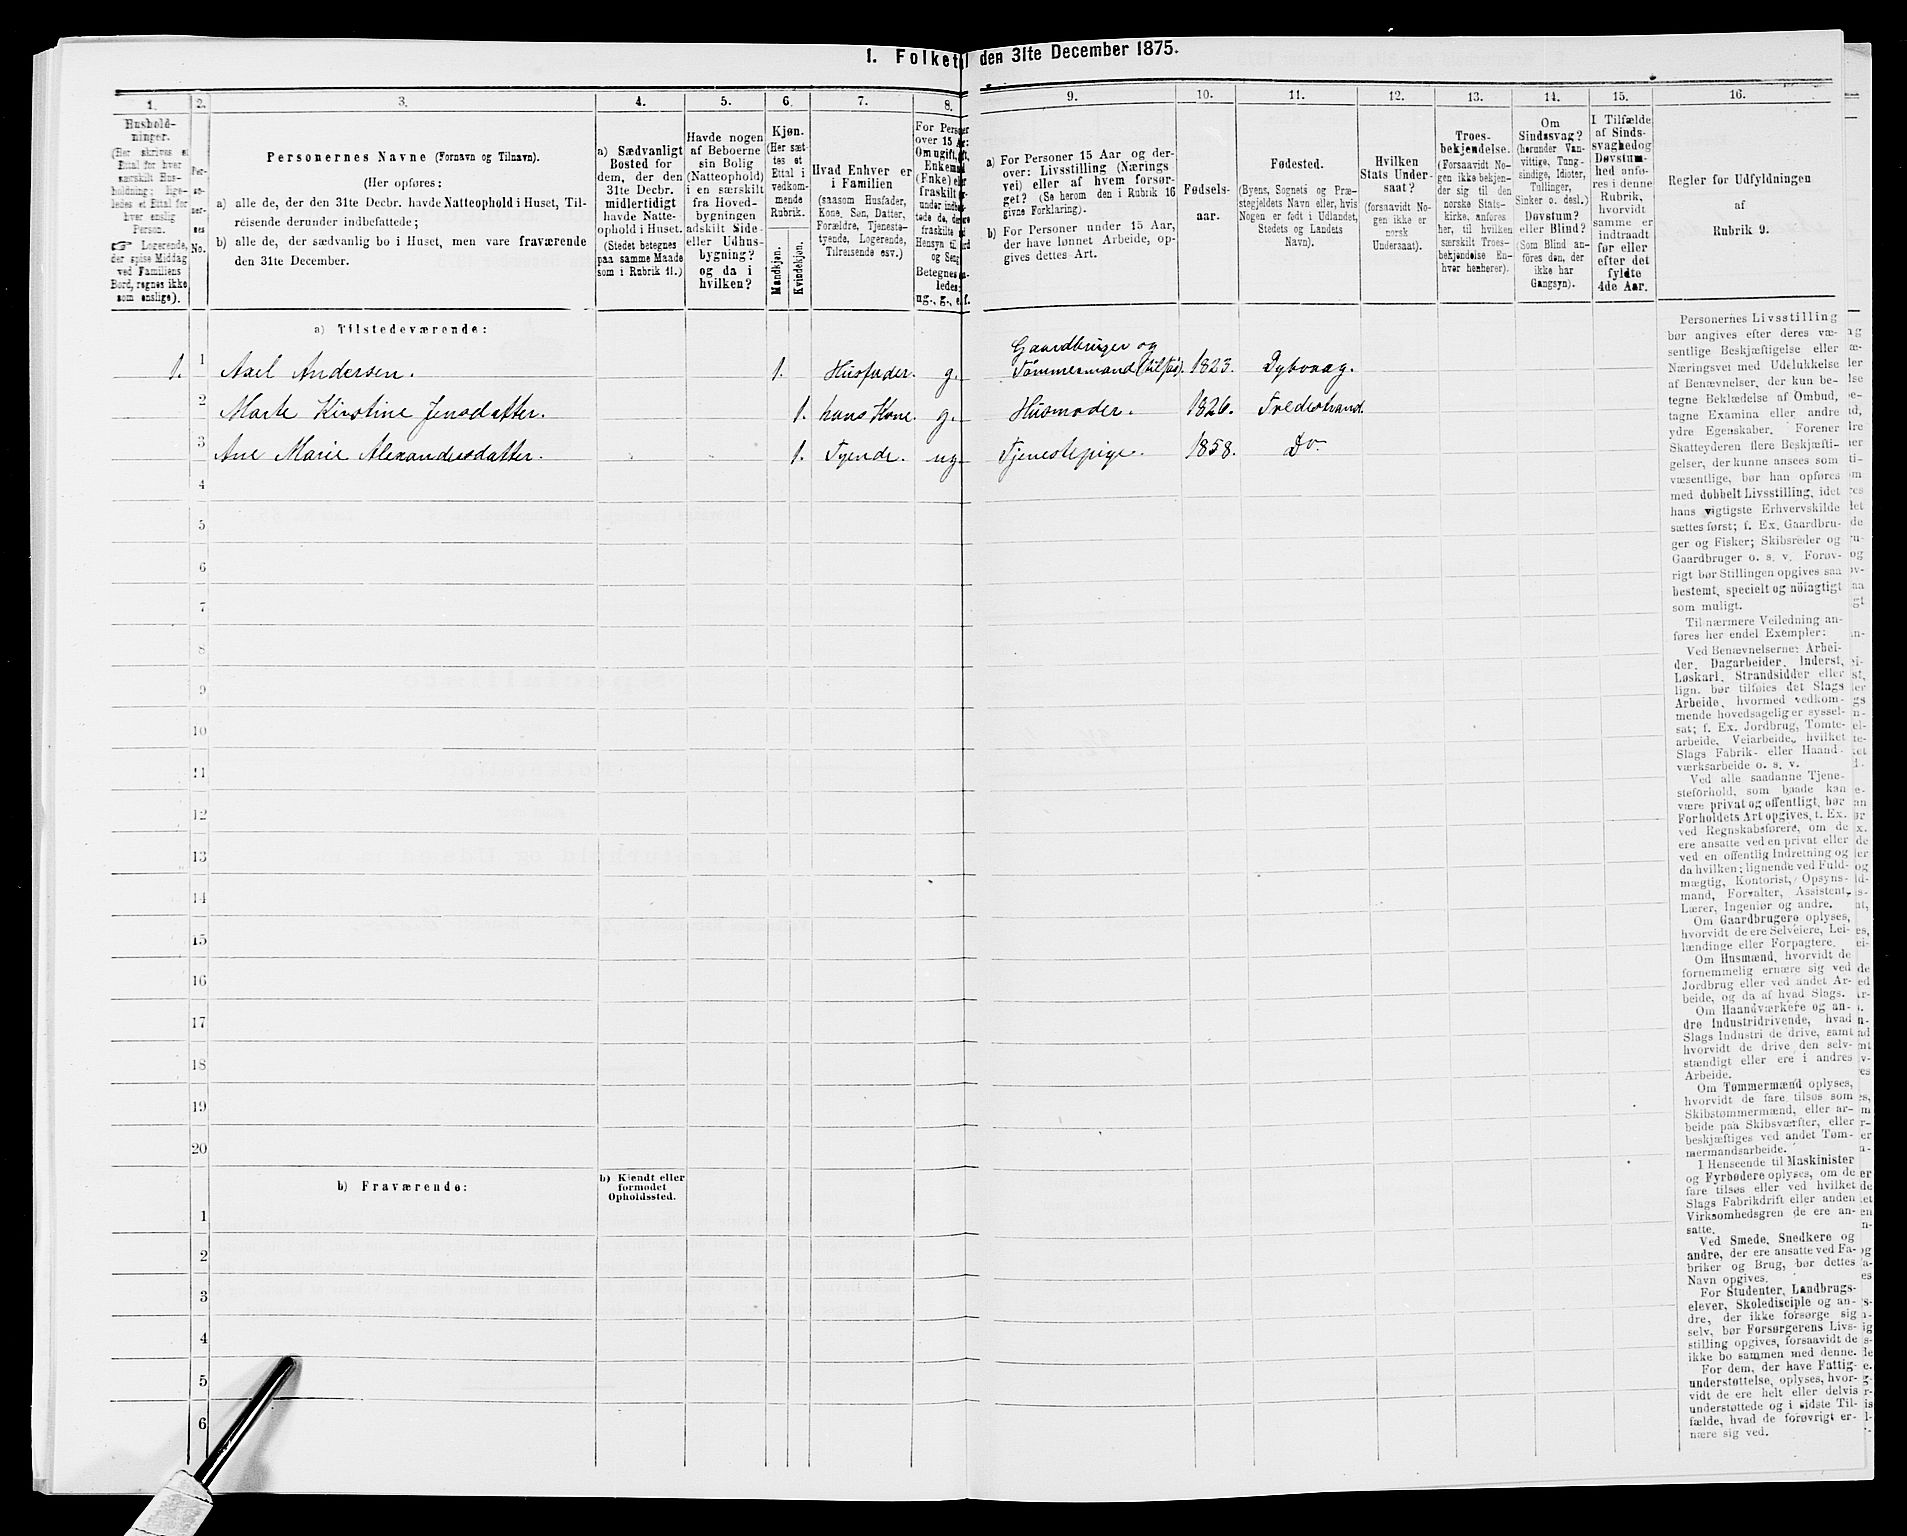 1. Folketal den 31te December 1875.
1.
Hushold-
ninger.
(Her skrives et
Ettal for hver
særskilt Hus-
holdning; lige-
ledes et Ettal for
hver enslig
Person.
☞ Logerende,
der spise Middag
ved Familiens
Bord, regnes ikke
som enslige).
2.
Per-
so-
ner-
nes
No.
3.
Personernes Navne (Fornavn og Tilnavn).
(Her opføres:
a) alle de, der den 31te Decbr. havde Natteophold i Huset, Til-
reisende derunder indbefattede;
b) alle de, der sædvanlig bo i Huset, men vare fraværende
den 31te December.
4.
a) Sædvanligt
Bosted for
dem, der den
31te Decbr.
midlertidigt
havde Natte-
ophold i Huset.
(Stedet betegnes
paa samme Maade
som i Rubrik 11.)
5.
Havde nogen
af Beboerne
sin Bolig
(Natteophold)
i en særskilt
fra Hoved-
bygningen
adskilt Side-
eller Udhus-
bygning?
og da i
hvilken?
6.
Kjøn.
(Her sæt-
tes et
Ettal i
vedkom-
mende
Rubrik.
Mandkjøn.
Kvindekjøn.
7.
Hvad Enhver er
i Familien
(saasom Husfader,
Kone, Søn, Datter,
Forældre, Tjeneste-
tyende, Logerende,
Tilreisende osv.)
8.
For Personer
over 15 Aar:
Om ugift,
Enkemand
(Enke) eller
fraskilt
Betegnes
ledes:
ug., g., e. f.
9.
a) For Personer 15 Aar og der-
over: Livsstilling (Nærings-
vei) eller af hvem forsør-
get? (Se herom den i Rubrik 16
givne Forklaring).
b) For Personer under 15 Aar,
der have lønnet Arbeide, op-
gives dettes Art.
10.
Fødsels-
aar.
11.
Fødested.
(Byens, Sognets og Præ-
stegjeldets Navn eller, hvis
Nogen er født i Udlandet,
Stedets og Landets
Navn).
12.
Hvilken
Stats Under-
saat?
(forsaavidt No-
gen ikke er
norsk
Undersaat).
13.
Troes-
bekjendelse.
(Forsaavidt No-
gen ikke bekjen-
der sig til den
norske Stats-
kirke, anføres
her, til hvilken
særskilt Troes-
bekjendelse En-
hver henhører).
14.
Om
Sindssvag?
(herunder Van-
vittige, Tung-
sindige, Idioter,
Tullinger,
Sinker o. desl.)
Døvstum?
eller Blind?
(Som Blind an-
føres den, der
ikke har
Gangsyn).
15.
I Tilfælde
af Sinds-
svaghed og
Døvstum-
hed anfø-
res i denne
Rubrik,
hvorvidt
samme er
indtraadt
før eller
efter det
fyldte
4de Aar.
16.
Regler for Udfyldningen
af
Rubrik 9.
a) Tilstedeværende:
1. 1 Axel Andersen. 1. Husfader. g. Gaardbruger og
Tømmermand (tilsøs). 1823. Dybvaag.
2 Marte Kirstine Jensdatter. 1. hans Kone. g. Husmoder. 1826. Tvedestrand.
3 Ane Marie Alexandersdatter. 1. Tyende. ug. Tjenestepige. 1858. Do.
4
5
6
7
8
9
10
11
12
13
14
15
16
17
18
19
20
b) Fraværende:
b) Kjendt eller
formodet
Opholdssted.
1
2
3
4
5
6
Personernes Livsstilling
bør angives efter deres væ-
sentlige Beskjæftigelse eller
Næringsvei med Udelukkelse
af Benævnelser, der kun be-
tegne Beklædelse af Ombud,
tagne Examina eller andre
ydre Egenskaber. Forener
Skatteyderen flere Beskjæfti-
gelser, der kunne ansees som
væsentlige, bør han opføres
med dobbelt Livsstilling, idet
hans vigtigste Erhvervskilde
sættes først; f. Ex. Gaardbru-
ger og Fisker; Skibsreder og
Gaardbruger o. s. v. Forøv-
rigt bør Stillingen opgives saa
bestemt, specielt og nöiagtigt
som muligt.
Til nærmere Veiledning an-
føres her endel Exempler:
Ved Benævnelserne: Arbei-
der, Dagarbeider, Inderst,
Løskarl, Strandsidder eller
lign. bør tilføies det Slags
Arbeide, hvormed vedkom-
mende hovedsagelig er syssel-
sat; f. Ex. Jordbrug, Tomte-
arbeide, Veiarbeide, hvilket
Slags Fabrik- eller Haand-
værksarbeide o. s. v.
Ved alle saadanne Tjene-
steforhold, som baade kan
være privat og offentligt, bør
Forholdets Art opgives, f. Ex.
ved Regnskabsførere, om de
ere ansatte ved en privat eller
ved en offentlig Indretning og
da hvilken; lignende ved Fuld-
mægtig, Kontorist, Opsyns-
mand, Forvalter, Assistent,
Lærer, Ingeniør og andre.
Om Gaardbrugere oplyses,
hvorvidt de ere Selveiere, Lei-
lændinge eller Forpagtere.
Om Husmænd, hvorvidt de
fornemmelig ernære sig ved
Jordbrug eller ved andet Ar-
beide, og da af hvad Slags.
Om Haandværkere og an-
dre Industridrivende, hvad
Slags Industri de drive, samt
hvorvidt de drive den selv-
stændigt eller ere i andres
Arbeide.
Om Tømmermænd oplyses,
hvorvidt de fare tilsøs som
Skibstømmermænd, eller ar-
beide paa Skibsværfter, eller
beskjæftiges ved andet Tøm-
mermandsarbeide.
I Henseende til Maskinister
og Fyrbødere oplyses, om de
fare tilsøs eller ved hvilket
Slags Fabrikdrift eller anden
Virksomhedsgren de ere an-
satte.
Ved Smede, Snedkere og
andre, der ere ansatte ved Fa-
briker og Brug, bør dettes
Navn opgives.
For Studenter, Landbrugs-
elever, Skoledisciple og an-
dre, der ikke forsørge sig
selv, bør Forsørgerens Livs-
stilling opgives, forsaavidt de
ikke bo sammen med denne.
For dem, der have Fattig-
understøttelse, oplyses, hvor-
vidt de ere helt eller delvis
understøttede og i sidste Til-
fælde, hvad de forøvrigt er-
nære sig ved.